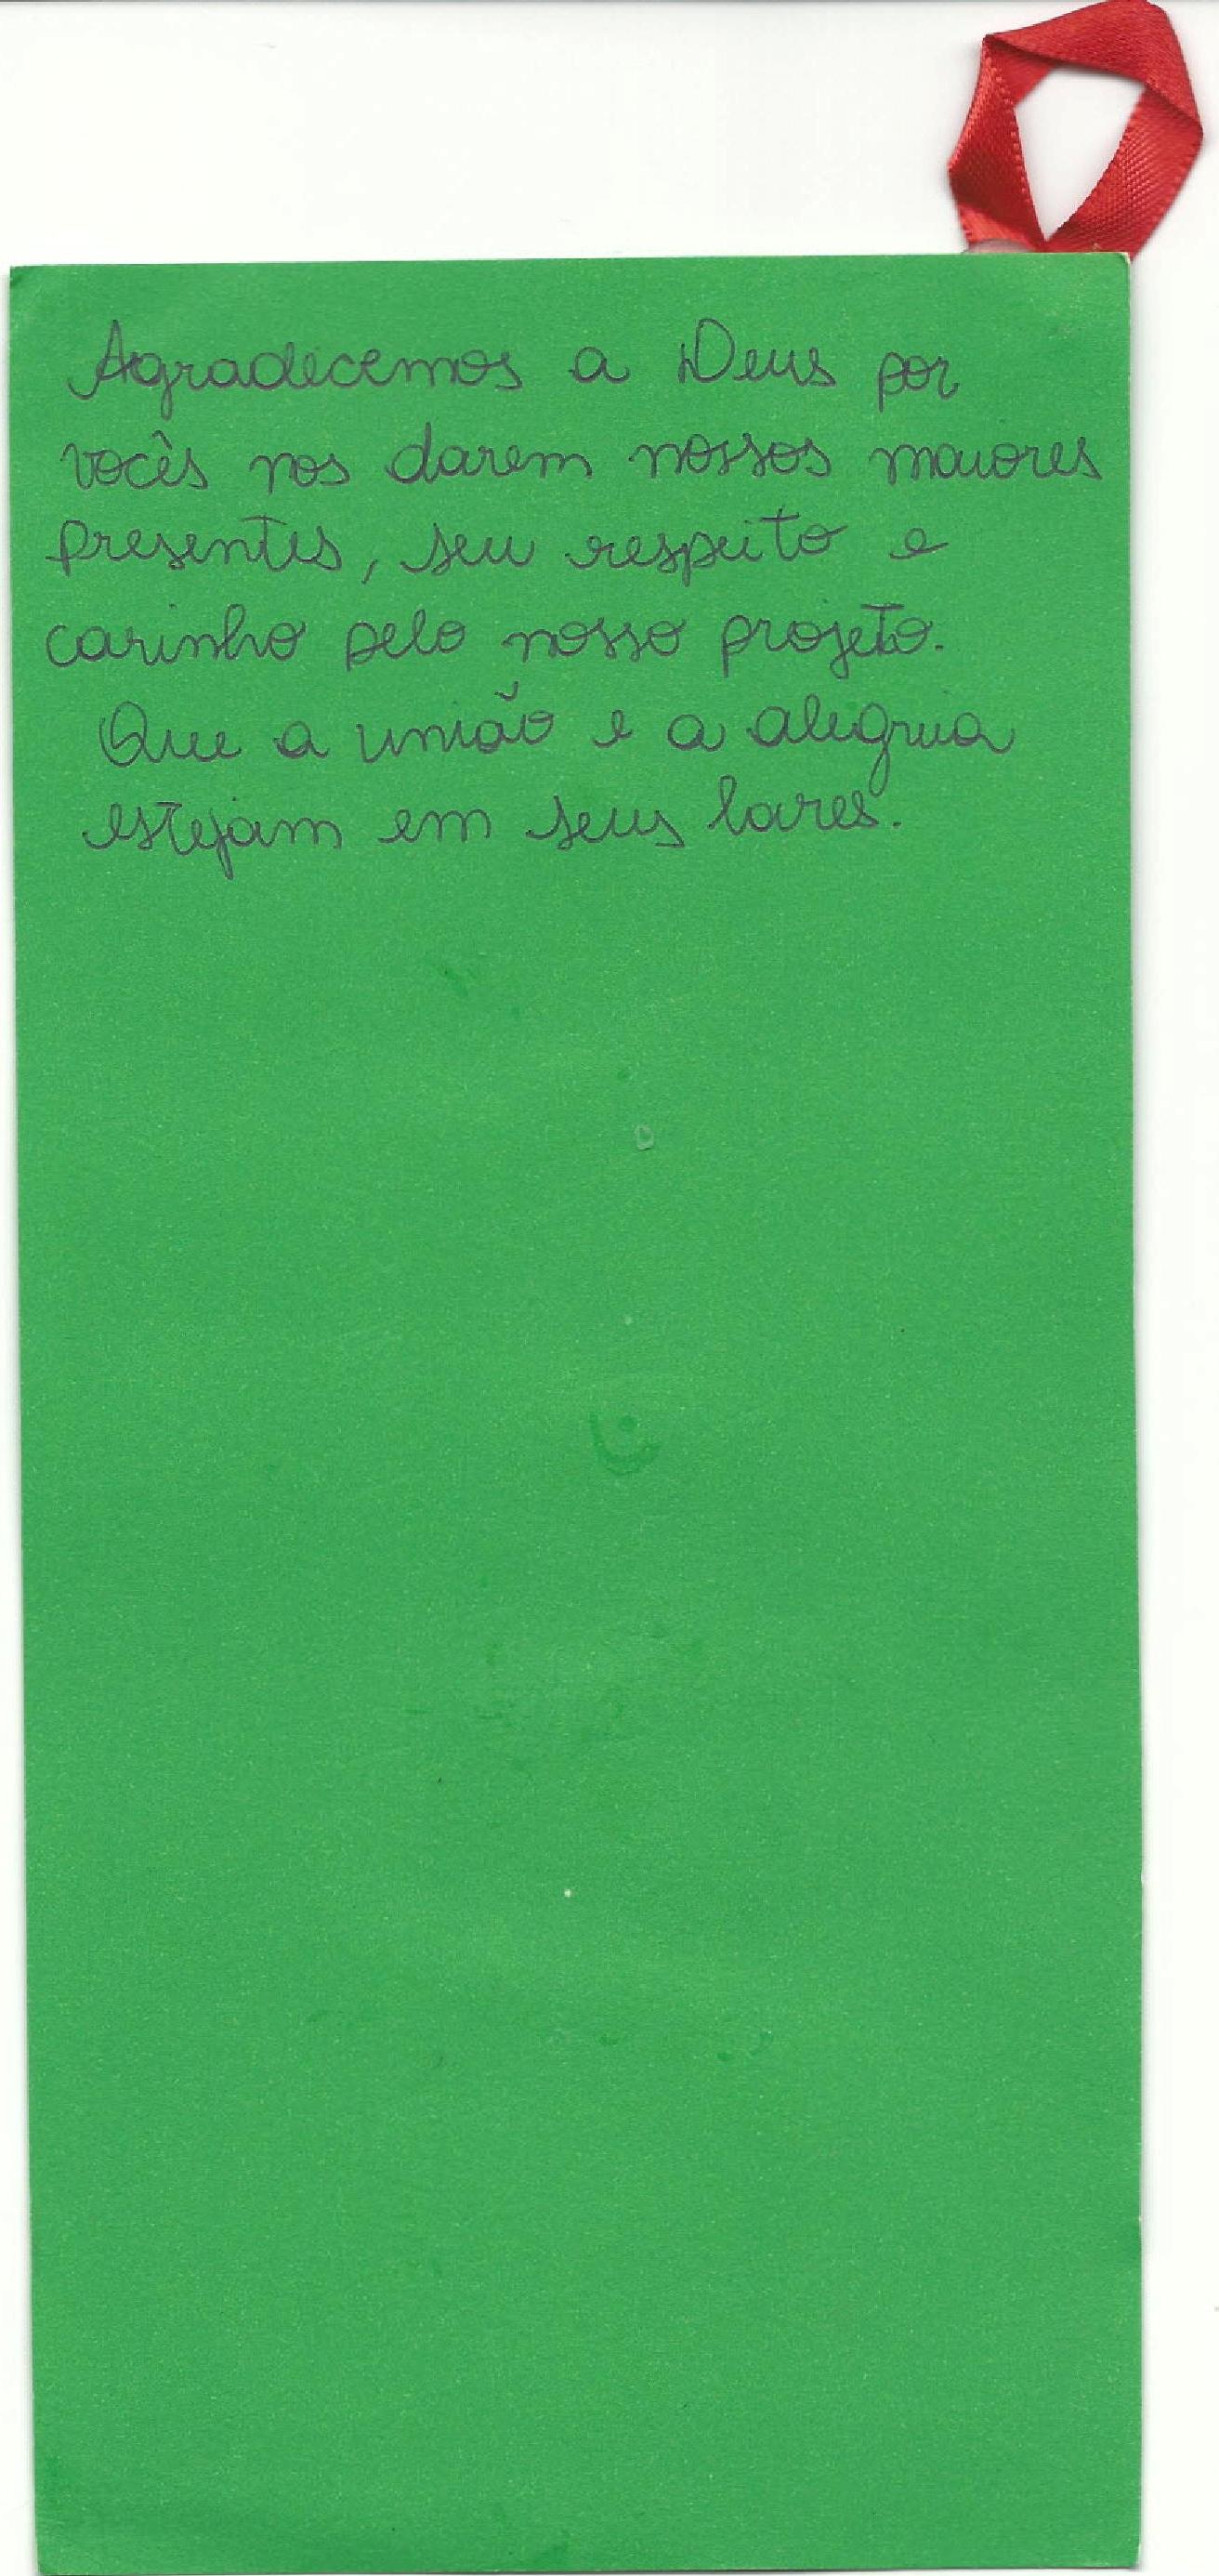 Agradecemos a Deus por
vocês nos darem nossos maiores
presentes, seu respeito e
carinho pelo nosso projeto.
Que a união e a alegria
estejam em seus lares.